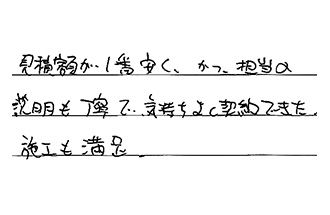 見積額が1番安く、かつ、担当の
説明も丁寧で、気持ちよく契約できた。
施工も満足。